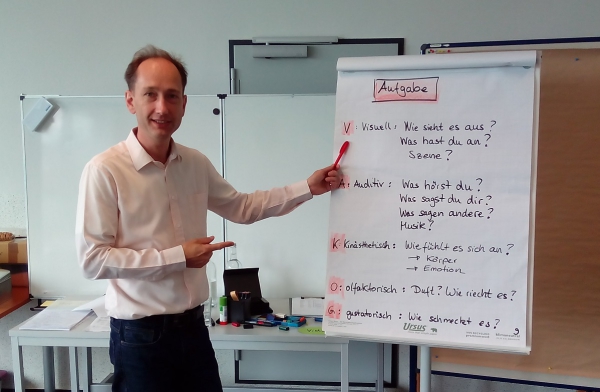 Aufgabe
V: Visuell: Wie sieht es aus?
Was hast du an?
Szene?
A: Auditiv: Was hörst du?
Was sagst du dir?
Was sagen andere?
Musik?
K: Kinästhetisch: Wie fühlt es sich an?
→ Körper
→ Emotion
O: olfaktorisch: Duft? Wie riecht es?
G: gustatorisch: Wie schmeckt es?
Ursus
9